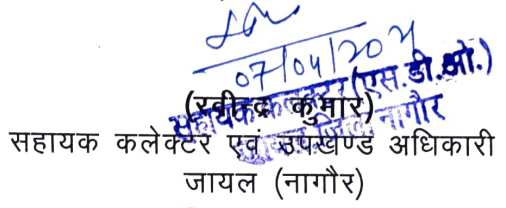 07/04/20
(रवीन्द्र कुमार)
सहायक कलेक्टर (एस.डी.ओ.)
नागौर
सहायक कलेक्टर एवं उपखण्ड अधिकारी
जायल (नागौर)